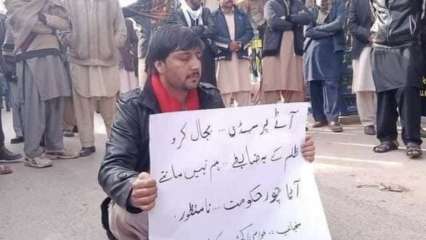 آٹے پر سبسڈی ... بحال کرو
ظلم کے یہ ضابطے ... ہم نہیں مانتے
آٹا چور حکومت ... نامنظور.
منجانب